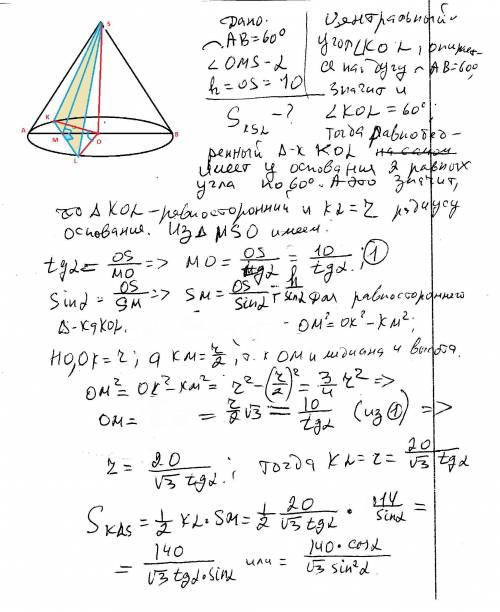 S
K
A
M
O
B
L
Дано:
◠AB=60°
∠OMS-α
h=OS=10
S KSL -?
Центральный
угол ∠KOL, опирает-
ся на дугу ◠AB=60°,
значит и
∠KOL=60°;
тогда равнобед-
ренный Δ-к KOL
имеет у основания 2 равных
угла по 60°. А это значит,
то ΔKOL-равносторонний и KL=r радиусу
основания. Из ΔMSO имеем:
tgα=OS/MO => MO=OS/tgα=10/tgα; ①
Sinα=OS/SM => SM=OS/sinα=h/sinα Для равностороннего
Δ-ка KOL. -OM²=OK²-KM²;
Но, OK=r; а KM=r/2, т.к OM и медиана и высота.
OM²=OK²-KM²=r²-(r/2)²=3/4 r² =>
OM= =r/2 √3=10/tgα (из ①) =>
r=20/(√3 tgα); тогда KL=r=20/(√3 tgα)
S KLS=1/2 KL·SM=1/2 20/(√3 tgα)·14/sinα=
=140/(√3 tgα·sinα) или =140·cosα/(√3 sin²α)